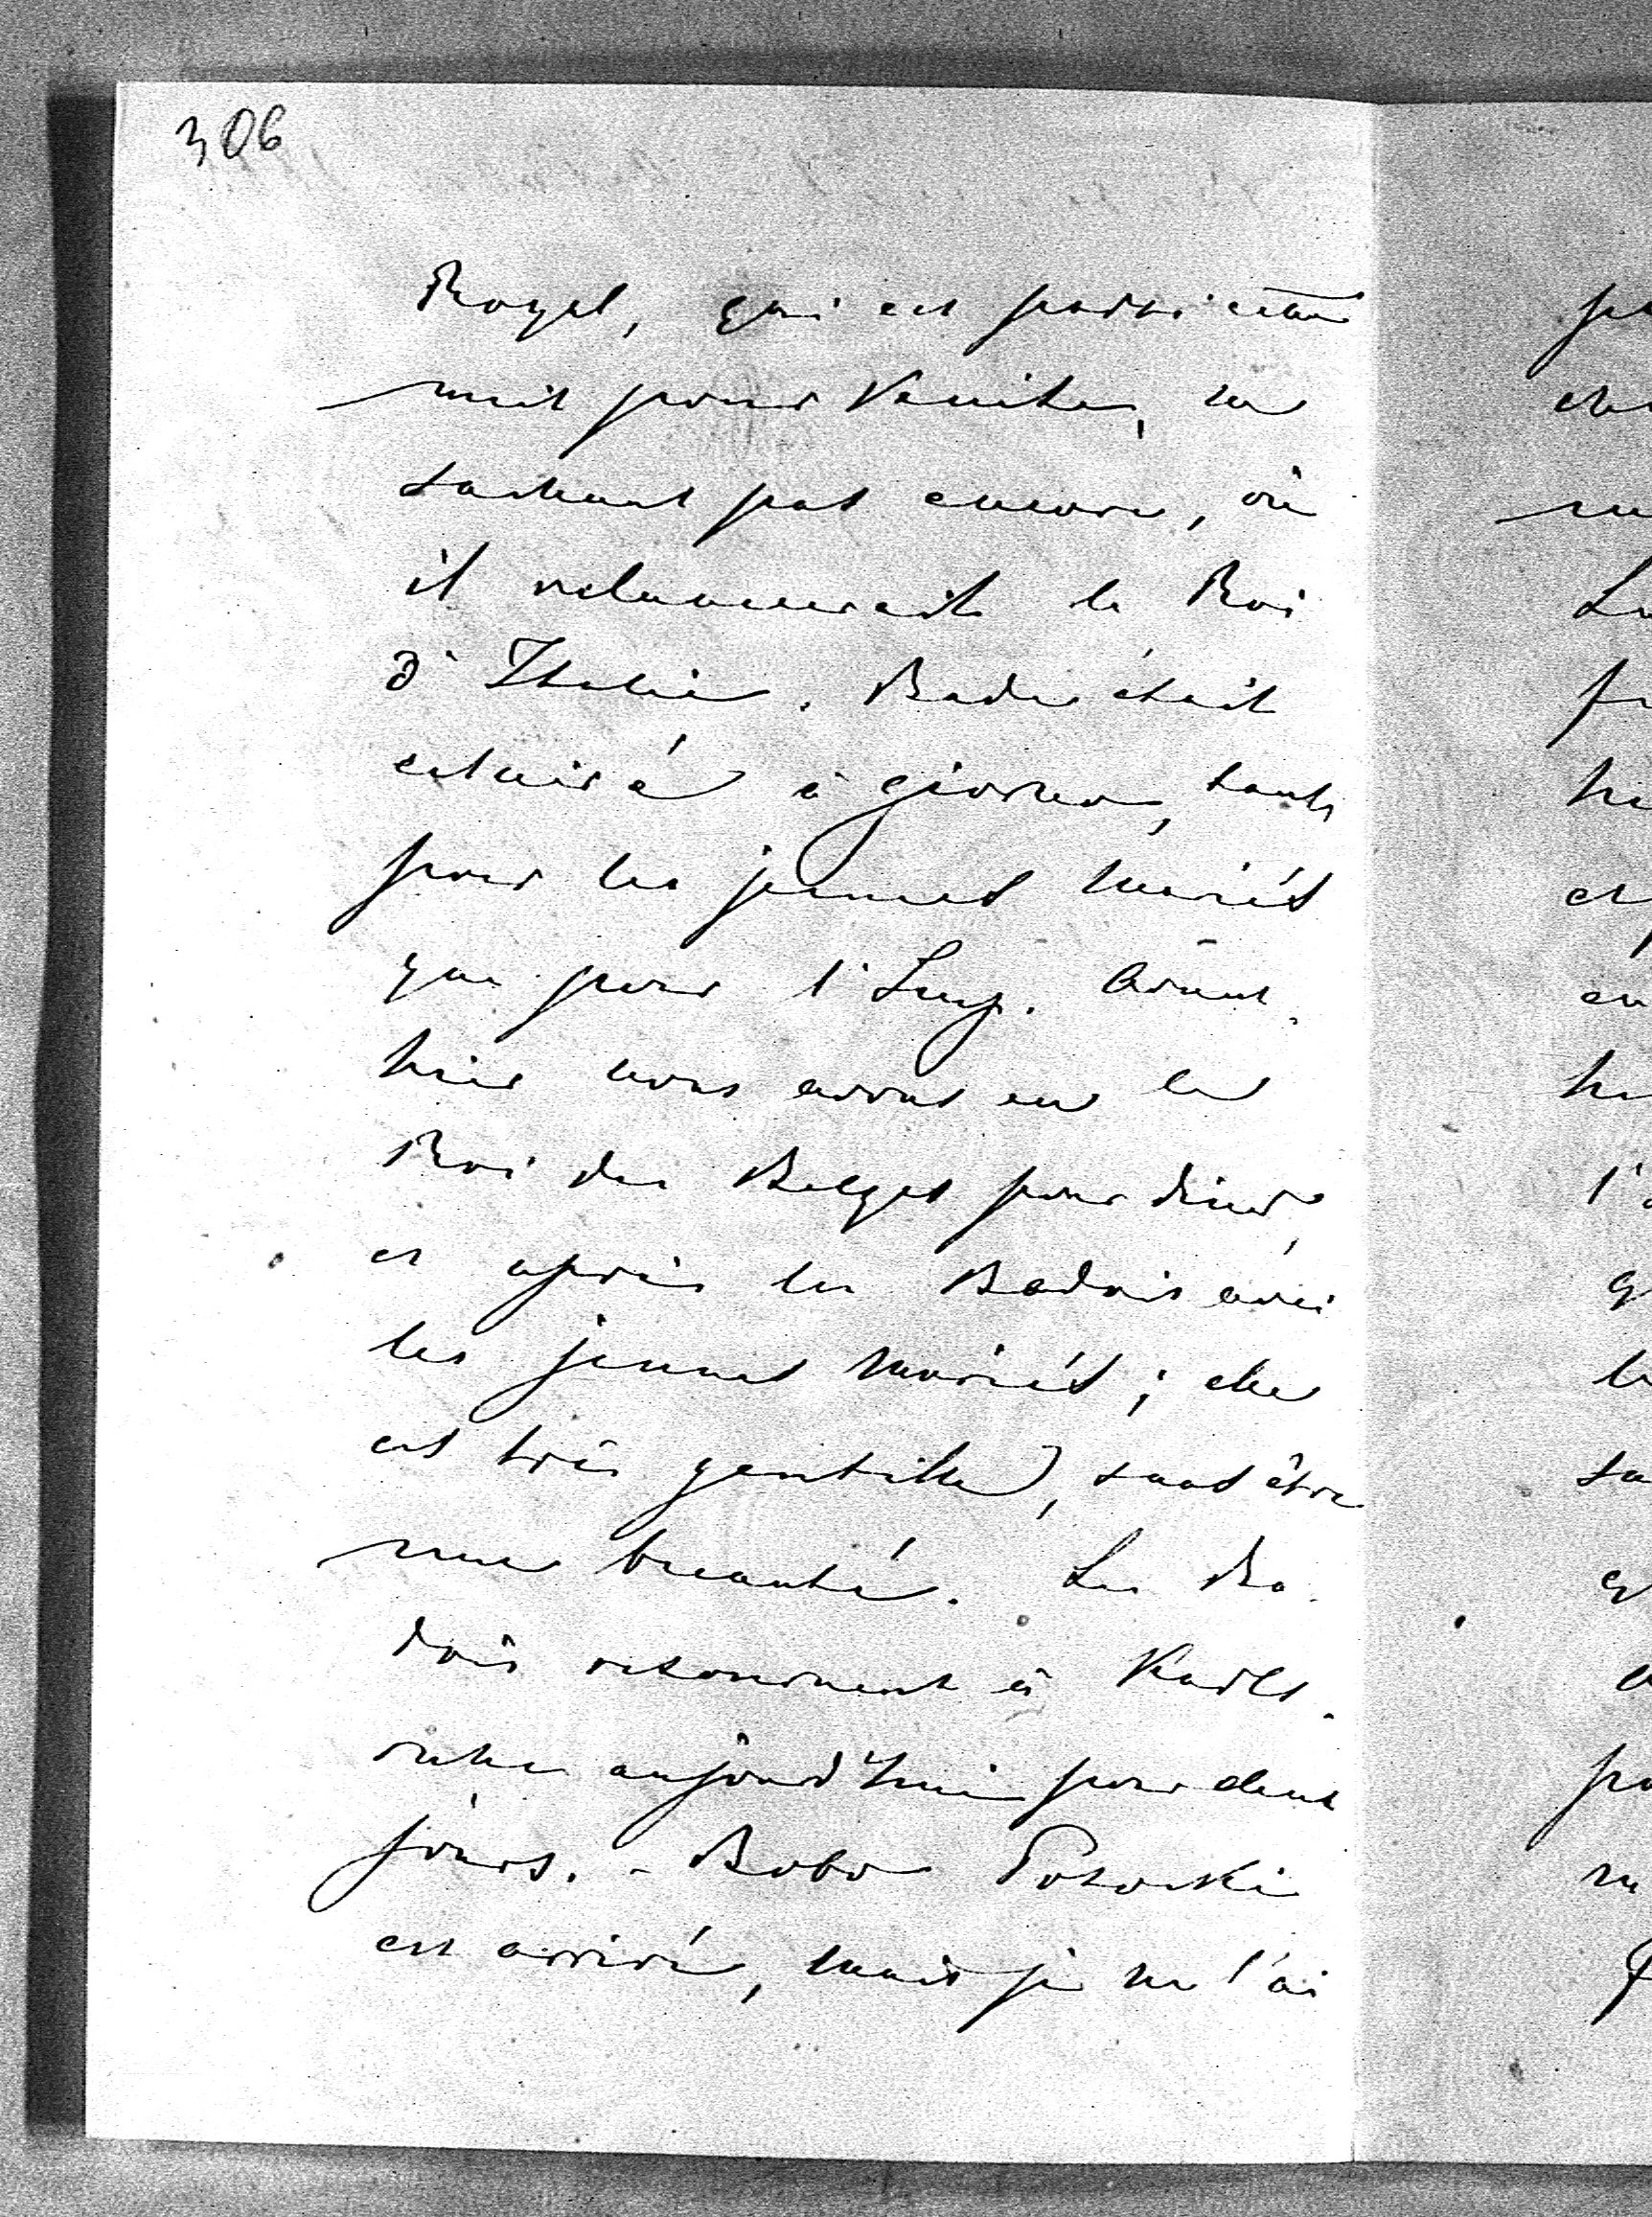 306
Royal, qui est parti cette
nuit pour Venise, ne
sachant pas encore, où
il relancerait le Roi
d'Italie. Bade était
éclairé à giorno, tant
pour les jeunes mariés
que pour l'Imp. Avant-
hier nous avons eu le
Roi des Belges pour diner,
et après les Badois avec
les jeunes mariés; elle
est très gentille, sans être
une beauté. Les Ba-
dois retournent à Karls-
ruhe aujourd'hui pour deux
jours. - Bobo Potocki
est arrivé, mais je ne l'ai